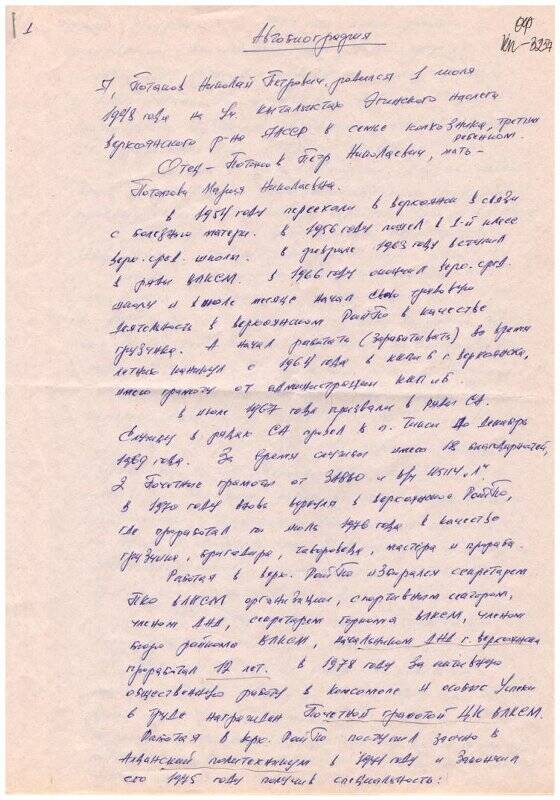 1
ОФ
КП-3237
Автобиография
Я, Потапов Николай Петрович, родился 1 июля
1948 года на уч. Кыталыктах Эгинского наслега
Верхоянского р-на ЯАССР в семье колхозника, третьим
ребенком.
Отец – Потапов Петр Николаевич, мать –
Потапова Мария Николаевна.
В 1954 году переехали в Верхоянск в связи
с болезнью матери. В 1956 году пошел в 1-й класс
Верх. сред. школы. В феврале 1963 году вступил
в ряды ВЛКСМ. В 1966 году окончил Верх. сред.
школу и в июле месяце начал свою трудовую
деятельность в Верхоянском РайПо в качестве
грузчика. А начал работать (зарабатывать) во время
летних каникул с 1964 года в ККП и Б г. Верхоянска,
имею грамоту от администрации ККП и Б.
В июле 1967 года призвали в ряды СА.
Службу в рядах СА прошел в п. Тикси до декабря
1969 года. За время службы имею 18 благодарностей,
2 Почетные грамоты от ЗАБВО и в/ч "Л"
В 1970 году вновь вернулся в Верхоянское РайПо,
где проработал по июль 1976 года в качестве
грузчика, бригадира, товароведа, мастера и прораба.
Работая в Верх. РайПо избирался секретарем
ПКО ВЛКСМ организации, спортивным сектором,
членом ДНД, секретарем Горкома ВЛКСМ, членом
бюро райкома ВЛКСМ, начальником ДНД г. Верхоянска
проработал 12 лет. В 1978 году за активную
общественную работу в комсомоле и особые успехи
в труде награжден Почетной грамотой ЦК ВЛКСМ.
Работая в Верх. РайПо поступил заочно в
Алданский политехникум в 1971 году и закончил
его 1975 году получив специальность: